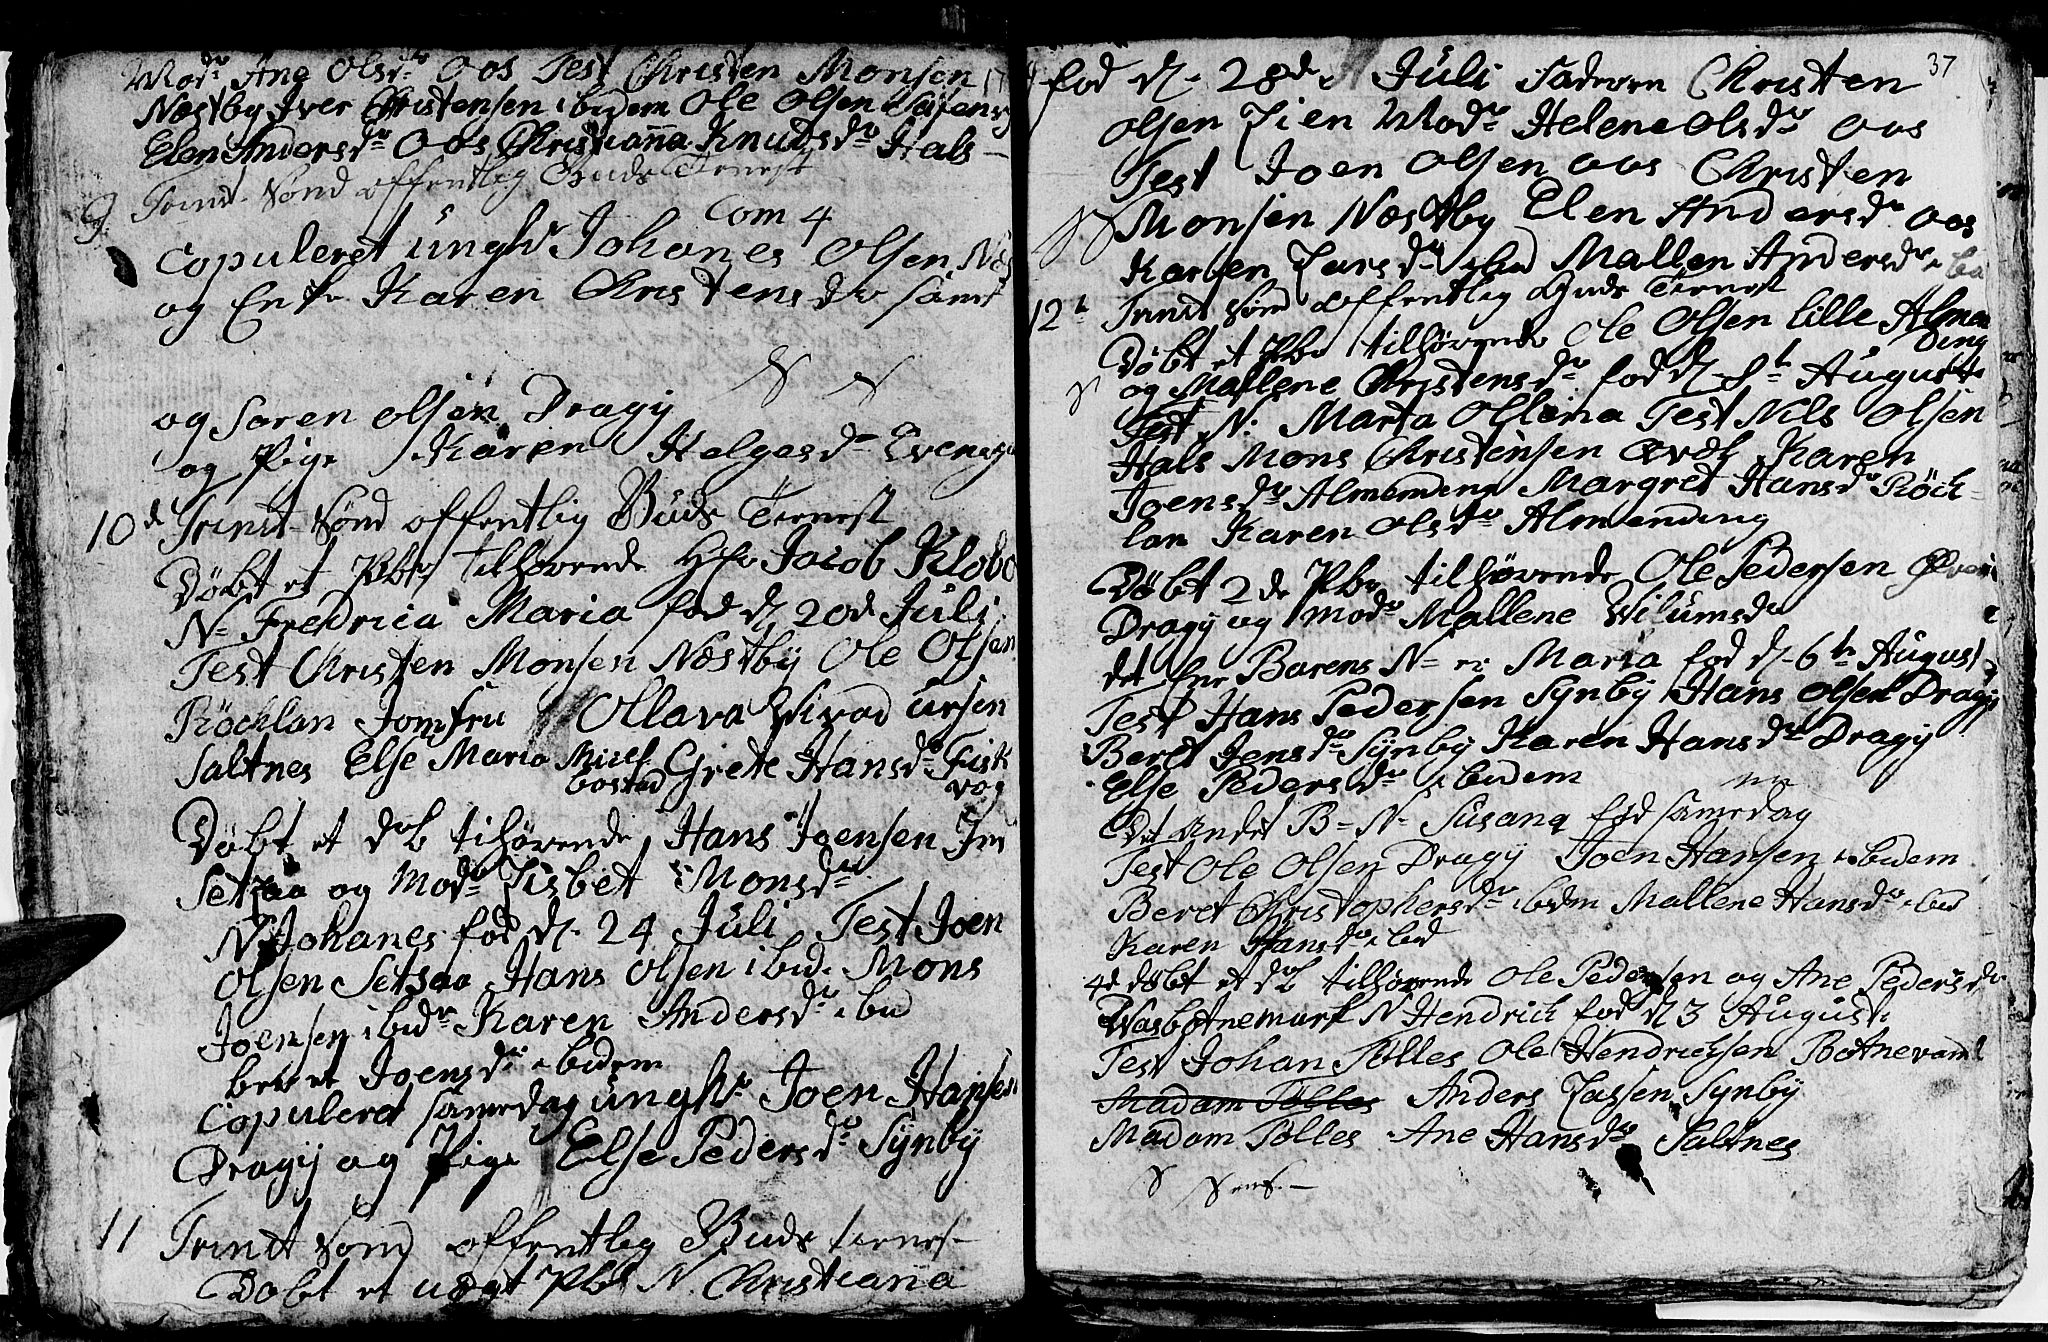 Modr Ane Olsdr Oos Test Christen Monsen
Næstby Iver Christensen ibidem Ole Olsen
Elen Andersdr Oos Christianna Knudsdr Hals
9 Trinit Sønd offentlig Guds Tienest
Com 4
Copuleret ungk Johanes Olsen
og Enke Karen Christensdr samt
og Saren Olsen Dragÿ
og Pige Karen Helgesdr
10de Trinit Sønd offentlig Guds Tienest
Døbt et Pbr tilhørende Hr Jacob Klobo
N Fredrica Maria fød d 20de Juli
Test Christen Monsen Næstbÿ Ole Olsen
Röchlan Jomfru Ollava
Saltnes Else Maria Grete Hansdr Fisk
bostad vog
Døbt et dbr tilhørende Hans Joensen
Setsaa og Modr Lisbet Monsdr
N Johanes fød d. 24 Juli Test Joen
Olsen Setsaa Hans Olsen ibid. Mons
Joensen ibidr Karen Andersdr ibid
beret Joensdr ibidem
Copuleret samedag ungk Joen Hansen
Dragÿ og Pige Else Pedersdr Sÿnbÿ
11 Trinit Sønd offentlig Guds tienest
Døbt et uægt Pbr N. Christiana
37
fød d. 28de Juli Faderen Christen
Olsen Lien Modr Helene Olsdr Oos
Test Joen Olsen Oos Christen
Monsen Næstby Elen Andersdr Oos
Karen Larsdr ibid Mallen Andersdr ibid
12te Trinit Sønd offentlig Guds Tienest
Døbt et Pbr tilhørende Ole Olsen lille Almen
ding
og Mallene Christensdr fød d. 8te August
Test N. Marta Ollina Test Nils Olsen
Hals Mons Christensen Karen
Joensdr Almending Margret Hansdr Röch
lan Karen Olsdr Almending
Døbt 2de Pbr tilhørende Ole Pedersen
Dragÿ og Modr Mallene Wilumsdr
det ene Barens N er Maria fød d. 6te August
Test Hans Pedersen Synbÿ Hans Olsen Dragÿ
Beret Jensdr Sÿnbÿ Karen Hansdr Dragÿ
Else Pedersdr ibidem
Det Andet B N Susana fød samedag
Test Ole Olsen Dragÿ Joen Hansen ibidem
Beret Christophersdr ibidem Mallene Hansdr ibid
Karen Hansdr ibid
4de døbt et dbr tilhørende Ole Pedersen og Ane Pedersdr
N Hendrich fød d 3 August
Test Johan Pølles Ole Hendrichsen Botnevand
Madam Pølles Anders Lassen Synbÿ
Madam Pølles Ane Hansdr Saltnes